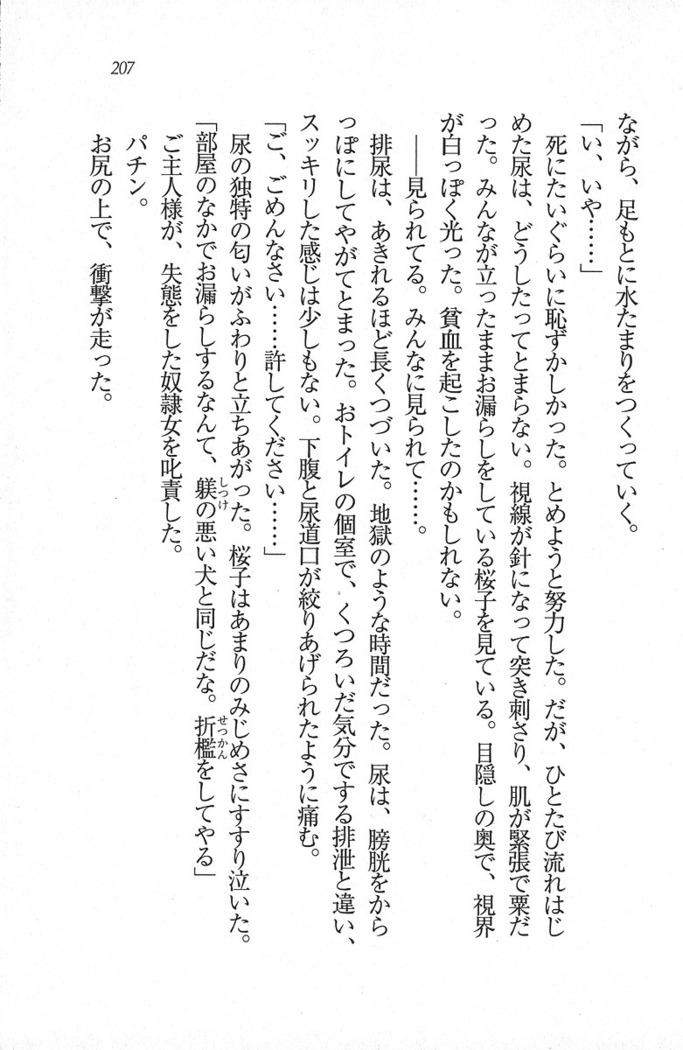 207
ながら、足もとに水たまりをつくっていく。
「い、いや……」
死にたいぐらいに恥ずかしかった。とめようと努力した。だが、ひとたび流れはじ
めた尿は、どうしたってとまらない。視線が針になって突き刺さり、肌が緊張で粟だ
った。みんなが立ったままお漏らしをしている桜子を見ている。目隠しの奥で、視界
が白っぽく光った。貧血を起こしたのかもしれない。
――見られてる。みんなに見られて……。
排尿は、あきれるほど長くつづいた。地獄のような時間だった。尿は、膀胱をから
っぽにしてやがてとまった。おトイレの個室で、くつろいだ気分でする排泄と違い、
スッキリした感じは少しもない。下腹と尿道口が絞りあげられたように痛む。
「ご、ごめんなさい……許してください……」
尿の独特の匂いがふわりと立ちあがった。桜子はあまりのみじめさにすすり泣いた。
「部屋のなかでお漏らしするなんて、躾の悪い犬と同じだな。折檻をしてやる」
しつけ
せっかん
ご主人様が、失態をした奴隷女を叱責した。
パチン。
お尻の上で、衝撃が走った。